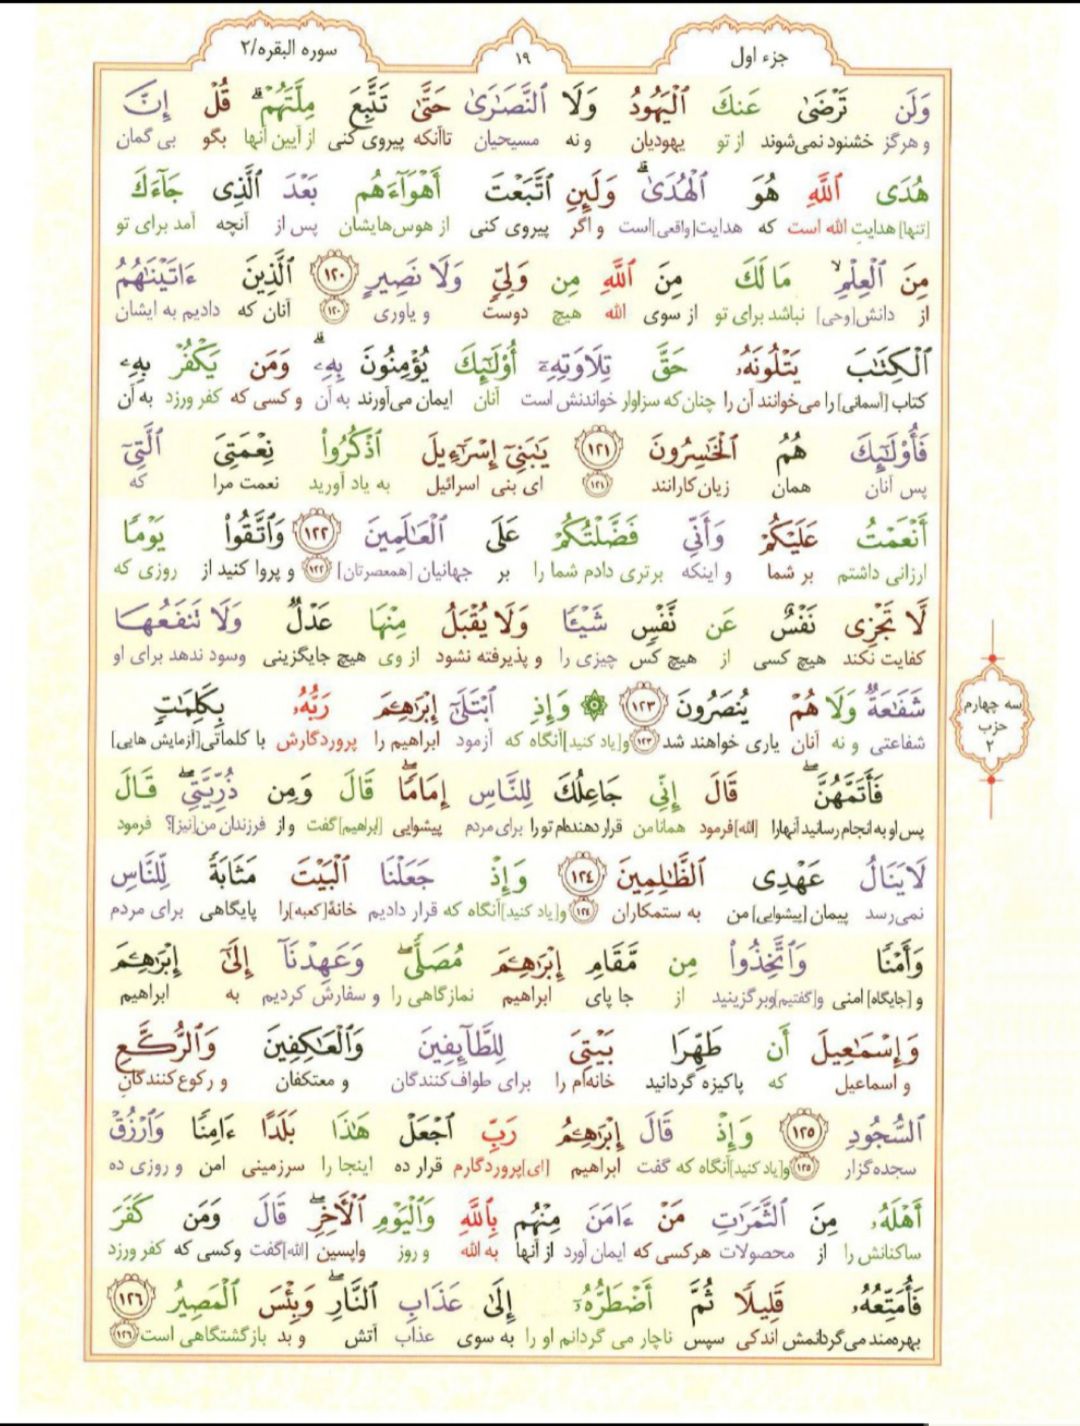 جزء اول
١٩
سوره البقره/٢
وَلَن تَرْضَىٰ عَنكَ ٱلْيَهُودُ وَلَا ٱلنَّصَٰرَىٰ حَتَّىٰ تَتَّبِعَ مِلَّتَهُمْ ۗ قُلْ إِنَّ
و هرگز خشنود نمی‌شوند از تو یهودیان و نه مسیحیان تاآنکه پیروی کنی از آیین آنها بگو بی گمان
هُدَى ٱللَّهِ هُوَ ٱلْهُدَىٰ ۗ وَلَئِنِ ٱتَّبَعْتَ أَهْوَآءَهُم بَعْدَ ٱلَّذِى جَآءَكَ
[تنها] هدایتِ الله است که هدایت[واقعی]است و اگر پیروی کنی از هوس‌هایشان پس از آنچه آمد برای تو
مِنَ ٱلْعِلْمِ ۙ مَا لَكَ مِنَ ٱللَّهِ مِن وَلِىٍّ وَلَا نَصِيرٍ ١٢٠ ٱلَّذِينَ ءَاتَيْنَٰهُمُ
از دانش[وحی] نباشد برای تو از سوی الله هیچ دوست و یاوری ١٢٠ آنان که دادیم به ایشان
ٱلْكِتَٰبَ يَتْلُونَهُۥ حَقَّ تِلَاوَتِهِۦٓ أُو۟لَٰٓئِكَ يُؤْمِنُونَ بِهِۦ ۗ وَمَن يَكْفُرْ بِهِۦ
کتاب [آسمانی] را می‌خوانند آن را چنان‌که سزاوار خواندنش است آنان ایمان می‌آورند به آن و کسی که کفر ورزد به آن
فَأُو۟لَٰٓئِكَ هُمُ ٱلْخَٰسِرُونَ ١٢١ يَٰبَنِىٓ إِسْرَٰٓءِيلَ ٱذْكُرُوا۟ نِعْمَتِىَ ٱلَّتِىٓ
پس آنان همان زیان‌کارانند ١٢١ ای بنی اسرائیل به یاد آورید نعمت مرا که
أَنْعَمْتُ عَلَيْكُمْ وَأَنِّى فَضَّلْتُكُمْ عَلَى ٱلْعَٰلَمِينَ ١٢٢ وَٱتَّقُوا۟ يَوْمًا
ارزانی داشتم بر شما و اینکه برتری دادم شما را بر جهانیان [همعصرتان] ١٢٢ و پروا کنید از روزی که
لَّا تَجْزِى نَفْسٌ عَن نَّفْسٍ شَيْـًٔا وَلَا يُقْبَلُ مِنْهَا عَدْلٌ وَلَا تَنفَعُهَا
کفایت نکند هیچ کسی از هیچ کس چیزی را و پذیرفته نشود از وی هیچ جایگزینی وسود ندهد برای او
شَفَٰعَةٌ وَلَا هُمْ يُنصَرُونَ ١٢٣ ۞ وَإِذِ ٱبْتَلَىٰٓ إِبْرَٰهِـۧمَ رَبُّهُۥ بِكَلِمَٰتٍ
شفاعتی و نه آنان یاری خواهند شد ١٢٣ و[یاد کنید]آنگاه که آزمود ابراهیم را پروردگارش با کلماتی[آزمایش هایی]
سه چهارم
حزب
٢
فَأَتَمَّهُنَّ ۖ قَالَ إِنِّى جَاعِلُكَ لِلنَّاسِ إِمَامًا ۖ قَالَ وَمِن ذُرِّيَّتِى ۖ قَالَ
پس او به انجام رسانید آنهارا [الله]فرمود همانا من قرار دهنده‌ام تو را برای مردم پیشوایی [ابراهیم]گفت و از فرزندان من[نیز]؟ فرمود
لَا يَنَالُ عَهْدِى ٱلظَّٰلِمِينَ ١٢٤ وَإِذْ جَعَلْنَا ٱلْبَيْتَ مَثَابَةً لِّلنَّاسِ
نمی‌رسد پیمان [پیشوایی] من به ستمکاران ١٢٤ و[یاد کنید]آنگاه که قرار دادیم خانهٔ[کعبه]را پایگاهی برای مردم
وَأَمْنًا وَٱتَّخِذُوا۟ مِن مَّقَامِ إِبْرَٰهِـۧمَ مُصَلًّى ۖ وَعَهِدْنَآ إِلَىٰٓ إِبْرَٰهِـۧمَ
و [جایگاه] امنی و[گفتیم]وبرگزینید از جا پای ابراهیم نمازگاهی را و سفارش کردیم به ابراهیم
وَإِسْمَٰعِيلَ أَن طَهِّرَا بَيْتِىَ لِلطَّآئِفِينَ وَٱلْعَٰكِفِينَ وَٱلرُّكَّعِ
و اسماعیل که پاکیزه گردانید خانه‌ام را برای طواف‌کنندگان و معتکفان و رکوع‌کنندگان
ٱلسُّجُودِ ١٢٥ وَإِذْ قَالَ إِبْرَٰهِـۧمُ رَبِّ ٱجْعَلْ هَٰذَا بَلَدًا ءَامِنًا وَٱرْزُقْ
سجده‌گزار ١٢٥ و[یاد کنید]آنگاه که گفت ابراهیم [ای]پروردگارم قرار ده اینجا را سرزمینی امن و روزی ده
أَهْلَهُۥ مِنَ ٱلثَّمَرَٰتِ مَنْ ءَامَنَ مِنْهُم بِٱللَّهِ وَٱلْيَوْمِ ٱلْأَخِرِ ۖ قَالَ وَمَن كَفَرَ
ساکنانش را از محصولات هرکسی که ایمان آورد از آنها به الله و روز واپسین [الله]گفت وکسی که کفر ورزد
فَأُمَتِّعُهُۥ قَلِيلًا ثُمَّ أَضْطَرُّهُۥٓ إِلَىٰ عَذَابِ ٱلنَّارِ ۖ وَبِئْسَ ٱلْمَصِيرُ ١٢٦
بهره‌مند می‌گردانمش اندکی سپس ناچار می گردانم او را به سوی عذاب آتش و بد بازگشتگاهی است ١٢٦